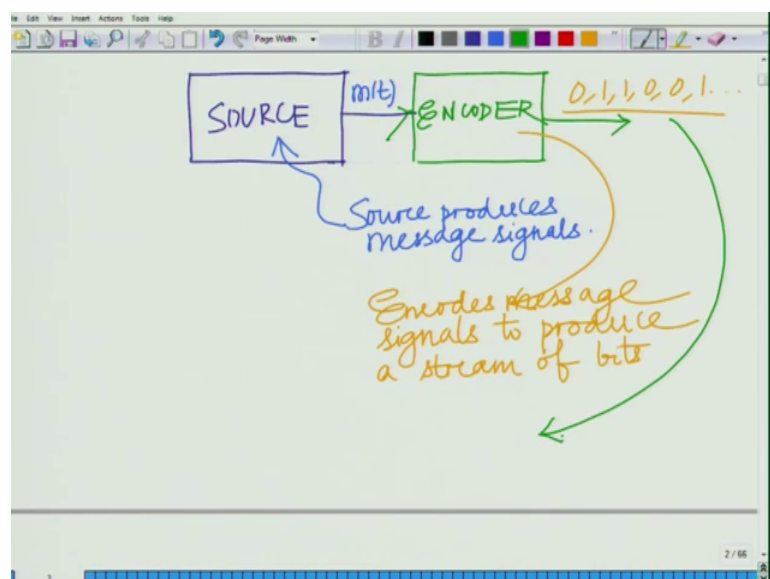 Edit View Insert Actions Tools Help
Page Width
B I
SOURCE
m(t)
ENCODER
0,1,1,0,0,1...
Source produces
message signals.
Encodes message
signals to produce
a stream of bits
2 / 66